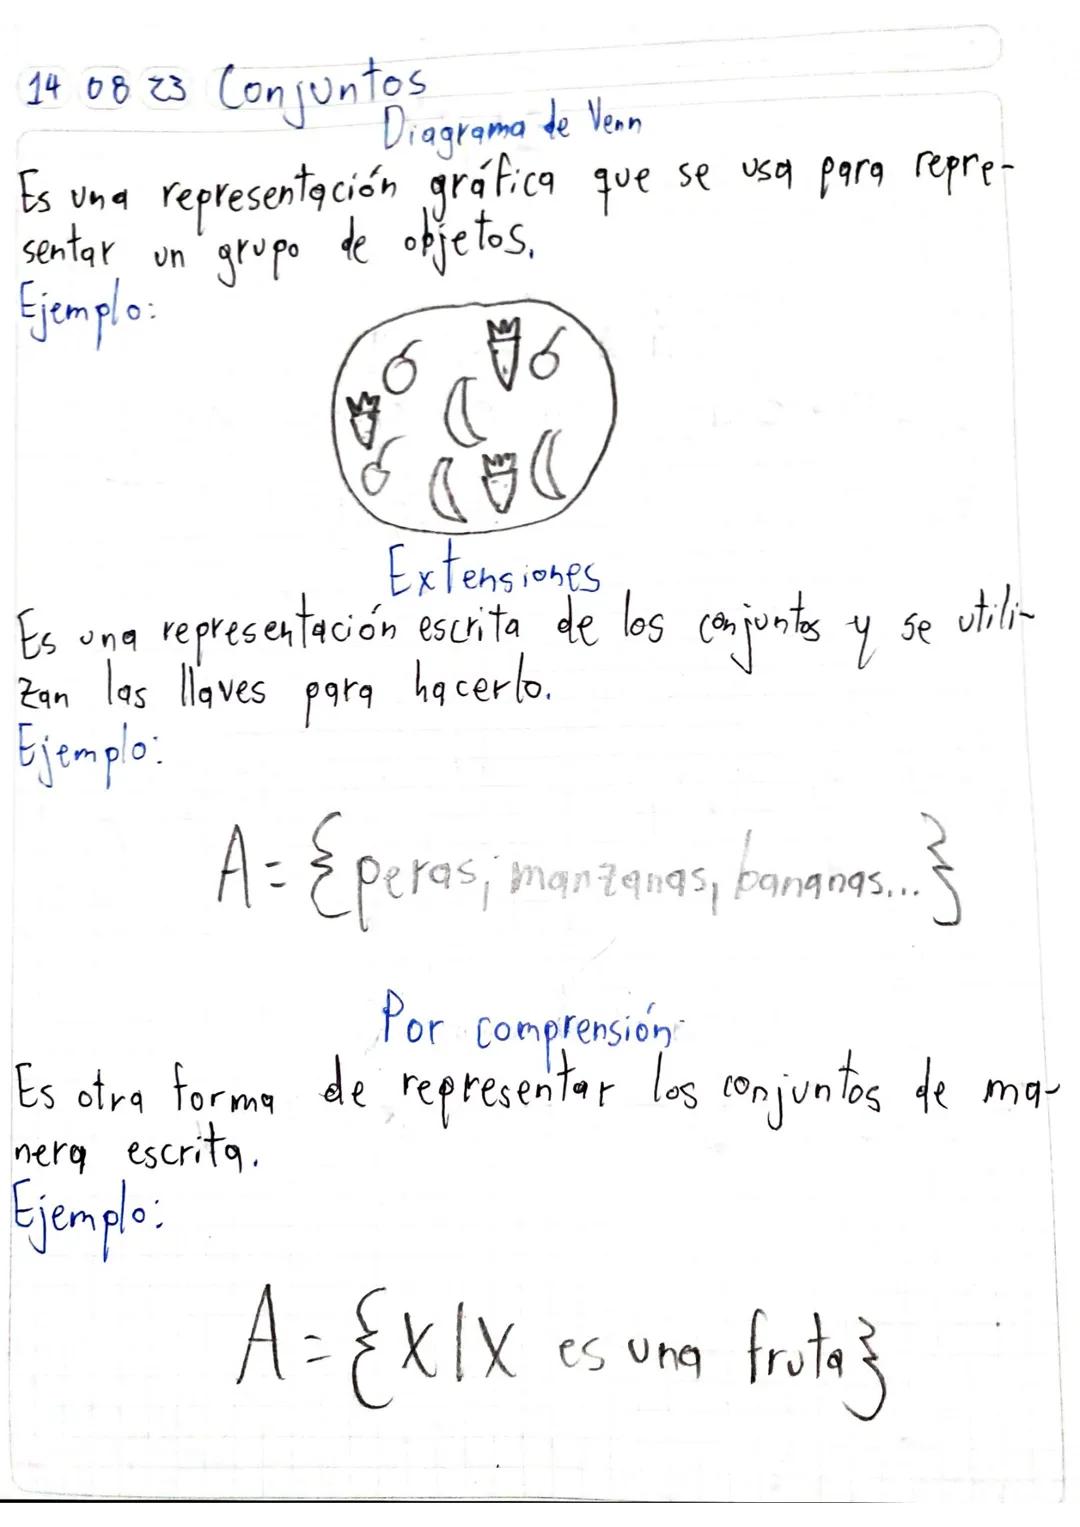 14 08 23 Conjuntos
Diagrama de Venn
Es una representación gráfica que se usa para repre-
sentar un grupo de objetos.
Ejemplo:
Extensiones
Es una representación escrita de los conjuntos y se utili-
zan las llaves para hacerlo.
Ejemplo:
A={peras, manzanas, bananas...}
Por comprensión
Es otra forma de representar los conjuntos de ma-
nera escrita.
Ejemplo:
A={X|X es una fruta}